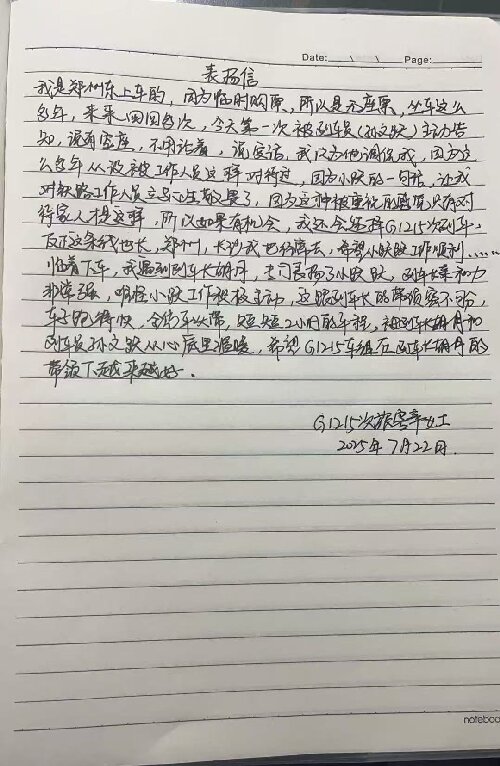 Date: Page:
表扬信
我是郑州东上车的，因为临时购票，所以是无座票，坐车这么
多年，来来回回多次，今天第一次被列车员（孙文歌）主动告
知，说有空座，不用站着，说实话，我以为他调侃我，因为这
么多年从没被工作人员这样对待过，因为小歌的一句话，让我
对铁路工作人员立马心生敬畏了，因为这种被重视的感觉只有对
待家人才是这样，所以如果有机会，我还会选择G1215次列车，
反正这条线也长，郑州，长沙我也经常去，希望小歌工作顺利……
临着下车，我遇到列车长胡丹，
非常强，明怪小歌工作积极主动，这跟列车长的带领密不可分，
车子跑得快，全靠车头带，短短2小时的车程，被列车长胡丹和
列车员孙文歌从心底里温暖，希望G1215车组在列车长胡丹的
带领下越来越好。
G1215次旅客辛女士
2025年7月22日.
notebook